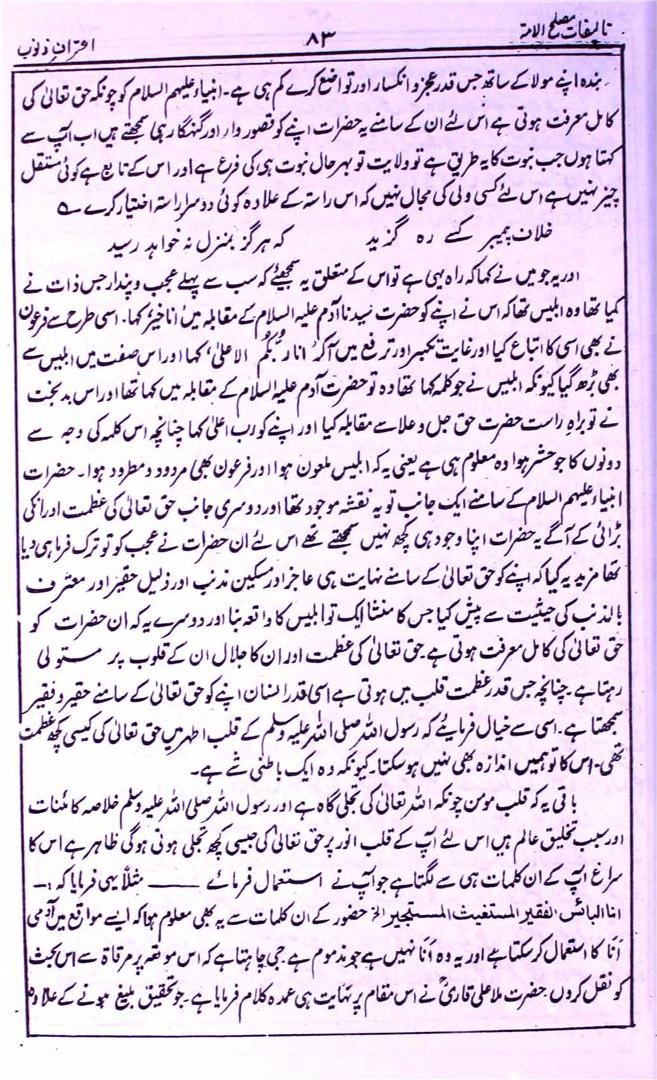 تالیفات مصلح الامۃ ۸۳ اعتراف ذنوب
بندہ اپنے مولا کے ساتھ جس قدر عجز و انکسار اور تواضع کرے کم ہی ہے۔ انبیاء علیہم السلام کو چونکہ حق تعالیٰ کی
کامل معرفت ہوتی ہے اس لئے ان کے سامنے یہ حضرات اپنے کو قصور وار اور گنہگار ہی سمجھتے ہیں اب آپ سے
کہتا ہوں جب نبوت کا یہ طریق ہے تو ولایت تو بہر حال نبوت ہی کی فرع ہے اور اس کے تابع ہے کوئی مستقل
چیز نہیں ہے اس لئے کسی ولی کی مجال نہیں کہ اس راستہ کے علاوہ کوئی دوسرا راستہ اختیار کرے ؎
خلاف پیمبر کسے رہ گزید کہ ہرگز بمنزل نہ خواہد رسید
اور یہ جو میں نے کہا کہ راہ یہی ہے تو اس کے متعلق یہ سمجھئے کہ سب سے پہلے عجب و پندار جس ذات نے
کیا تھا وہ ابلیس تھا کہ اس نے اپنے کو حضرت سیدنا آدم علیہ السلام کے مقابلہ میں انا خیر، کہا۔ اسی طرح سے فرعون
نے بھی اسی کا اتباع کیا اور غایت تکبر اور ترفع میں آکر انا ربکم الاعلیٰ، کہا اور اس صفت میں ابلیس سے
بھی بڑھ گیا کیونکہ ابلیس نے جو کلمہ کہا تھا وہ تو حضرت آدم علیہ السلام کے مقابلہ میں کہا تھا اور اس بدبخت
نے تو براہِ راست حضرت حق جل و علا سے مقابلہ کیا اور اپنے کو رب اعلیٰ کہا چنانچہ اس کلمہ کی وجہ سے
دونوں کا جو حشر ہوا وہ معلوم ہی ہے یعنی یہ کہ ابلیس ملعون ہوا اور فرعون بھی مردود و مطرود ہوا۔ حضرات
انبیاء علیہم السلام کے سامنے ایک جانب تو یہ نقشہ موجود تھا اور دوسری جانب حق تعالیٰ کی عظمت اور انکی
بڑائی کے آگے یہ حضرات اپنا وجود ہی کچھ نہیں سمجھتے تھے اس لئے ان حضرات نے عجب کو تو ترک فرما ہی دیا
تھا مزید یہ کیا کہ اپنے کو حق تعالیٰ کے سامنے نہایت ہی عاجز اور مسکین مذنب اور ذلیل حقیر اور معترف
بالذنب کی حیثیت سے پیش کیا جس کا منشا ایک تو ابلیس کا واقعہ بنا اور دوسرے یہ کہ ان حضرات کو
حق تعالیٰ کی کامل معرفت ہوتی ہے۔ حق تعالیٰ کی عظمت اور ان کا جلال ان کے قلوب پر مستولی
رہتا ہے۔ چنانچہ جس قدر عظمت قلب میں ہوتی ہے اسی قدر انسان اپنے کو حق تعالیٰ کے سامنے حقیر و فقیر
سمجھتا ہے۔ اسی سے خیال فرمائیے کہ رسول اللہ صلی اللہ علیہ وسلم کے قلب اطہر میں حق تعالیٰ کی کیسی کچھ عظمت
تھی۔ اس کا تو ہمیں اندازہ بھی نہیں ہو سکتا۔ کیونکہ وہ ایک باطنی شے ہے۔
باقی یہ کہ قلب مومن چونکہ اللہ تعالیٰ کی تجلی گاہ ہے اور رسول اللہ صلی اللہ علیہ وسلم خلاصہ کائنات
اور سبب تخلیق عالم ہیں اس لئے آپ کے قلب انور پر حق تعالیٰ کی جیسی کچھ تجلی ہوتی ہوگی ظاہر ہے اس کا
سراغ آپ کے ان کلمات ہی سے لگتا ہے جو آپ نے استعمال فرمائے ــــــ مثلاً یہی فرمایا کہ :۔
انا البائس الفقیر المستغیث المستجیر الخ حضور کے ان کلمات سے یہ بھی معلوم ہوا کہ ایسے مواقع میں آدمی
اَنَا کا استعمال کر سکتا ہے اور یہ وہ اَنَا نہیں ہے جو مذموم ہے۔ جی چاہتا ہے کہ اس موقعہ پر مرقاۃ سے اس بحث
کو نقل کروں حضرت ملا علی قاریؒ نے اس مقام پر نہایت ہی عمدہ کلام فرمایا ہے۔ جو تحقیق بلیغ ہونے کے علاوہ